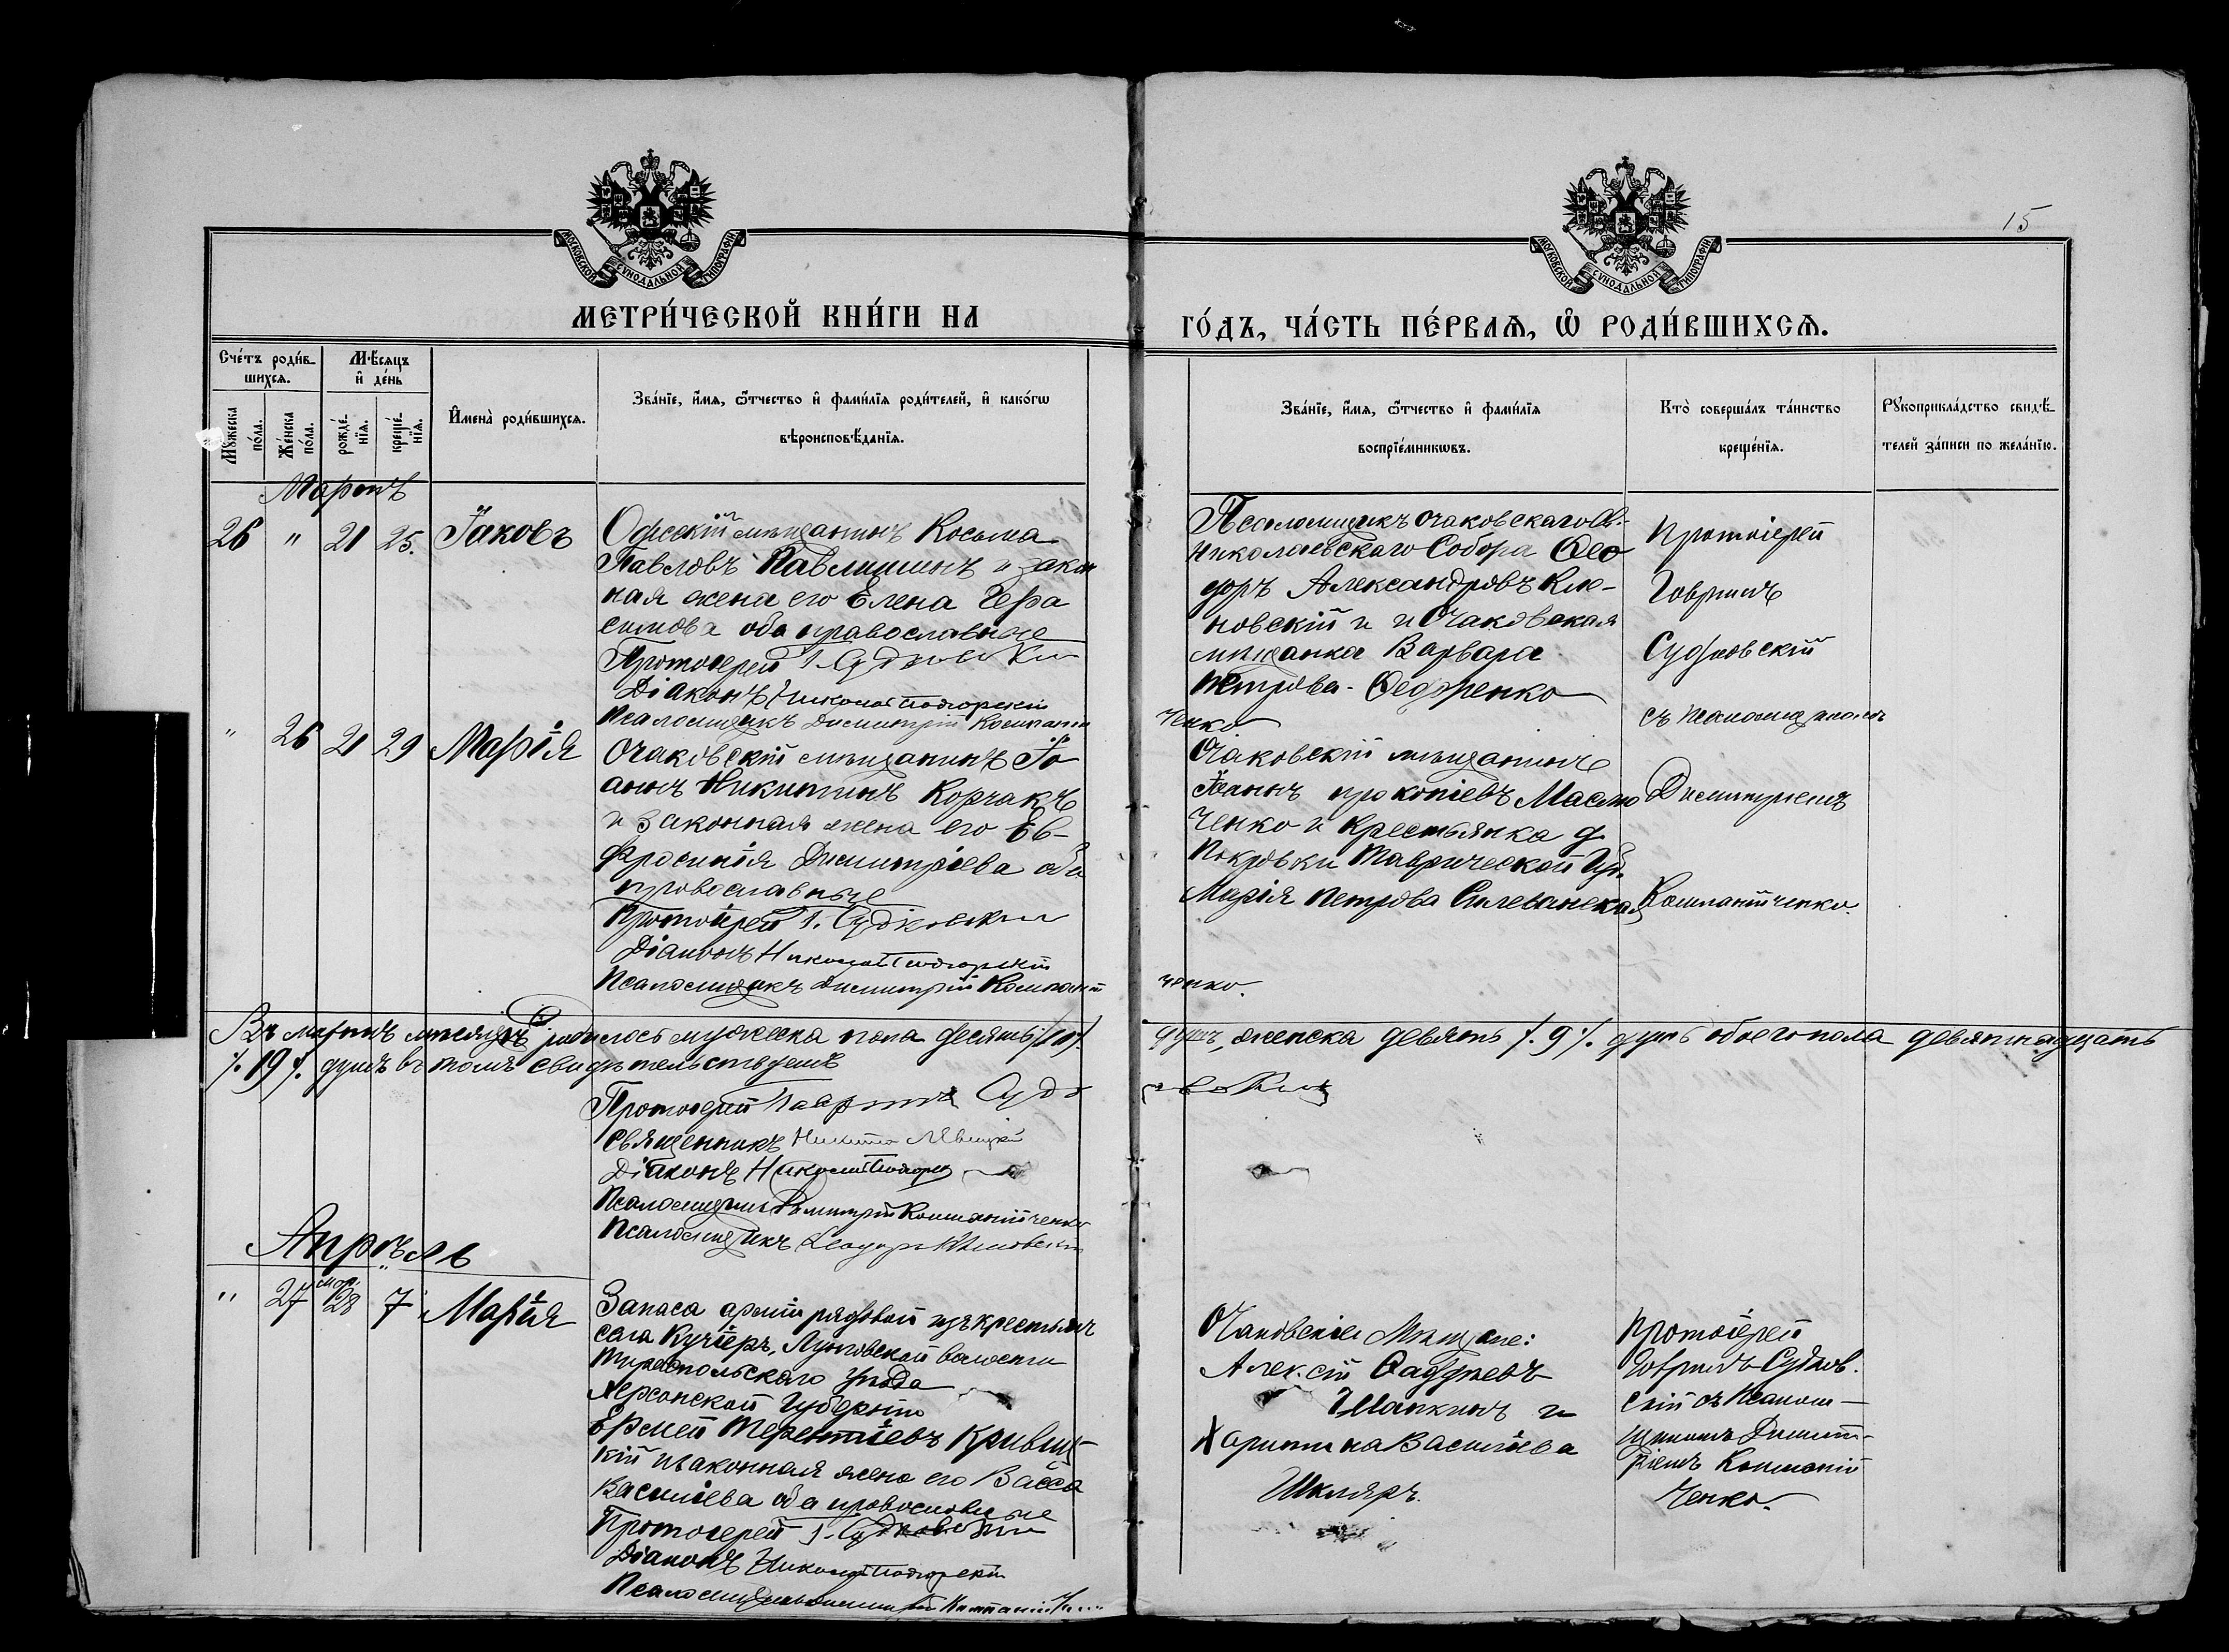 15
МОСКОВСКОЙ СѴНОДАЛЬНОЙ ТИПОГРАФІИ
МОСКОВСКОЙ СѴНОДАЛЬНОЙ ТИПОГРАФІИ
МЕТРИ́ЧЕСКОЙ КНИ́ГИ НА
ГО́ДЪ, ЧА́СТЬ ПЕ́РВАѦ, Ѽ РОДИ́ВШИХСѦ.
Сче́тъ роди́в-
шихсѧ.
Мꙋжеска
по́ла.
Же́нска
по́ла.
Мѣ́сѧцъ
и де́нь
рожде́-
нїѧ.
креще́-
нїѧ.
Имена̀ роди́вшихсѧ.
Зва́нїе, и́мѧ, ѻ́тчество и фами́лїѧ роди́телей, и како́гѡ
вѣроисповѣ́данїѧ.
Зва́нїе, и́мѧ, ѻ́тчество и фами́лїѧ
воспрїе́мникѡвъ.
Кто̀ соверша́лъ та́инство
креще́нїѧ.
Рꙋкоприкла́дство свидѣ́-
телей за́писи по жела́нїю.
Мартъ
26 " 21 25. Іаковъ
Одесскій мѣщанинъ Косьма
Павловъ Павлишинъ и закон
ная жена его Елена Гера
симова оба православные
Протоіерей Г. Судковскій
Діаконъ Николай Подгорскій
Псаломщикъ Димитрій Компаній
ченко
Псаломщикъ Очаковскаго Св.-
Николаевскаго Собора Ѳео
доръ Александровъ Кли-
новскій и Очаковская
мѣщанка Варвара
Петрова Ѳедоренко
Протоіерей
Гавріилъ
Судковскій
съ псаломщикомъ
Димитріемъ
Компанійченко.
" 26 21 29 Марія
Очаковскій мѣщанинъ Іо
аннъ Никитинъ Корчакъ
и законная жена его Ев-
фросинія Димитріева оба
православные
Протоіерей Г. Судковскій
Діаконъ Николай Подгорскій
Псаломщикъ Димитрій Компаній
ченко.
Очаковскій мѣщанинъ
Іоаннъ Прокопіевъ Масло
ченко и крестьянка д.
Покровки Таврической Губ.
Марія Петрова Силеванская
Въ мартѣ мѣсяцѣ родилось мужеска пола десять /.10/.
душъ, женска девять /.9/. душъ обоего пола девятнадцать
/.19/. душъ въ томъ свидѣтельствуемъ
Протоіерей Гавріилъ Судковскій
Священникъ Никита Левицкій
Діаконъ Николай Подгорскій
Псаломщикъ Димитрій Компанійченко
Псаломщикъ Ѳеодоръ Клиновскій
Апрѣль
" 27 мар. 28 7 Марія
Запаса арміи рядовой изъ крестьянъ
села Кучіеръ, Лунговской волости
Тираспольскаго уѣзда
Херсонской Губерніи
Ермей Терентіевъ Кривиц-
кій и законная жена его Васса
Васильева оба православные
Протоіерей Г. Судковскій
Діаконъ Николай Подгорскій
Псаломщикъ Димитрій Компанійченко
Очаковскіе Мѣщане:
Алексій Фаддѣевъ
Шапкинъ и
Харитина Васильева
Шкляръ.
Протоіерей
Гавріилъ Судков-
скій съ Псалом-
щикомъ Димит-
ріемъ Компаній
ченко.